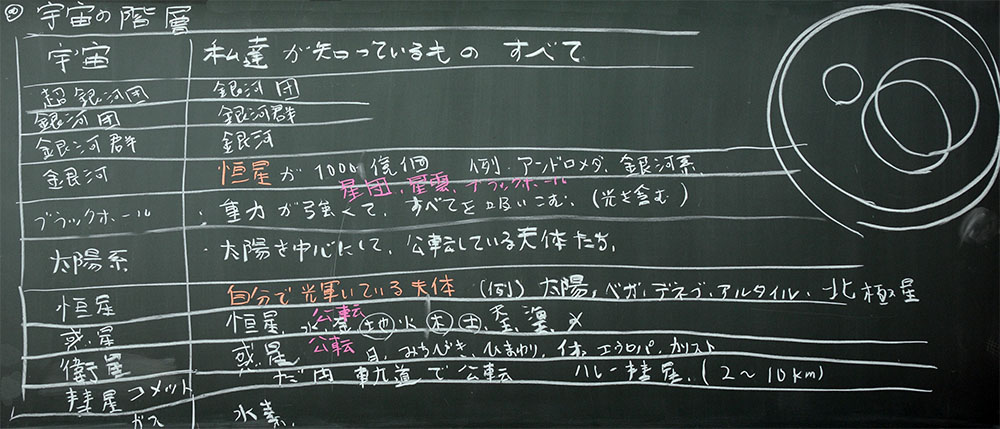 宇宙の階層
宇宙 私達が知っているもの すべて
超銀河団 銀河団
銀河団 銀河群
銀河群 銀河
銀河 恒星が1000億個 例.アンドロメダ、銀河系
星団、星雲、ブラックホール
ブラックホール ・重力が強くて、すべてを吸いこむ、(光を含む)
太陽系 ・太陽を中心にして、公転している天体たち、
恒星 自分で光輝いている天体 (例) 太陽、ベガ、デネブ、アルタイル、北極星
公転
惑星 恒星、水 地 火 木 土
公転
衛星 惑星 月、みちびき、ひまわり、エウロパ、カリスト
彗星 コメット だ円 軌道で公転 ハレー彗星、(2〜10km)
ガス 水素、